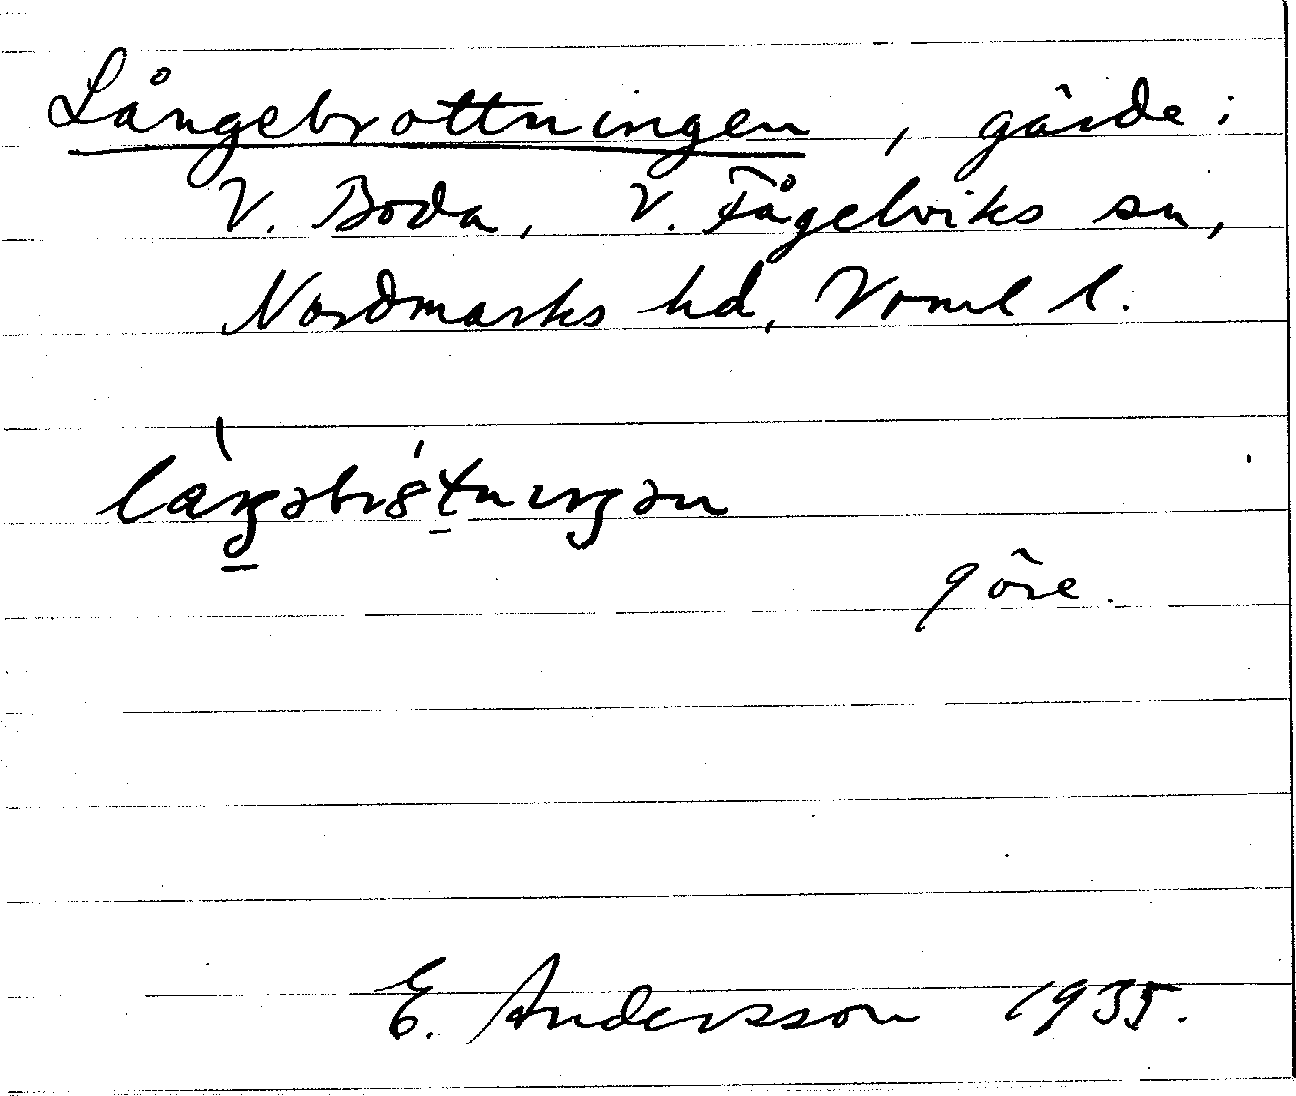 Långebrottningen, gärde i
V. Boda, V. Fågelviks sn,
Nordmarks hd, Vrml l.
göre.
E. Andersson 1935.